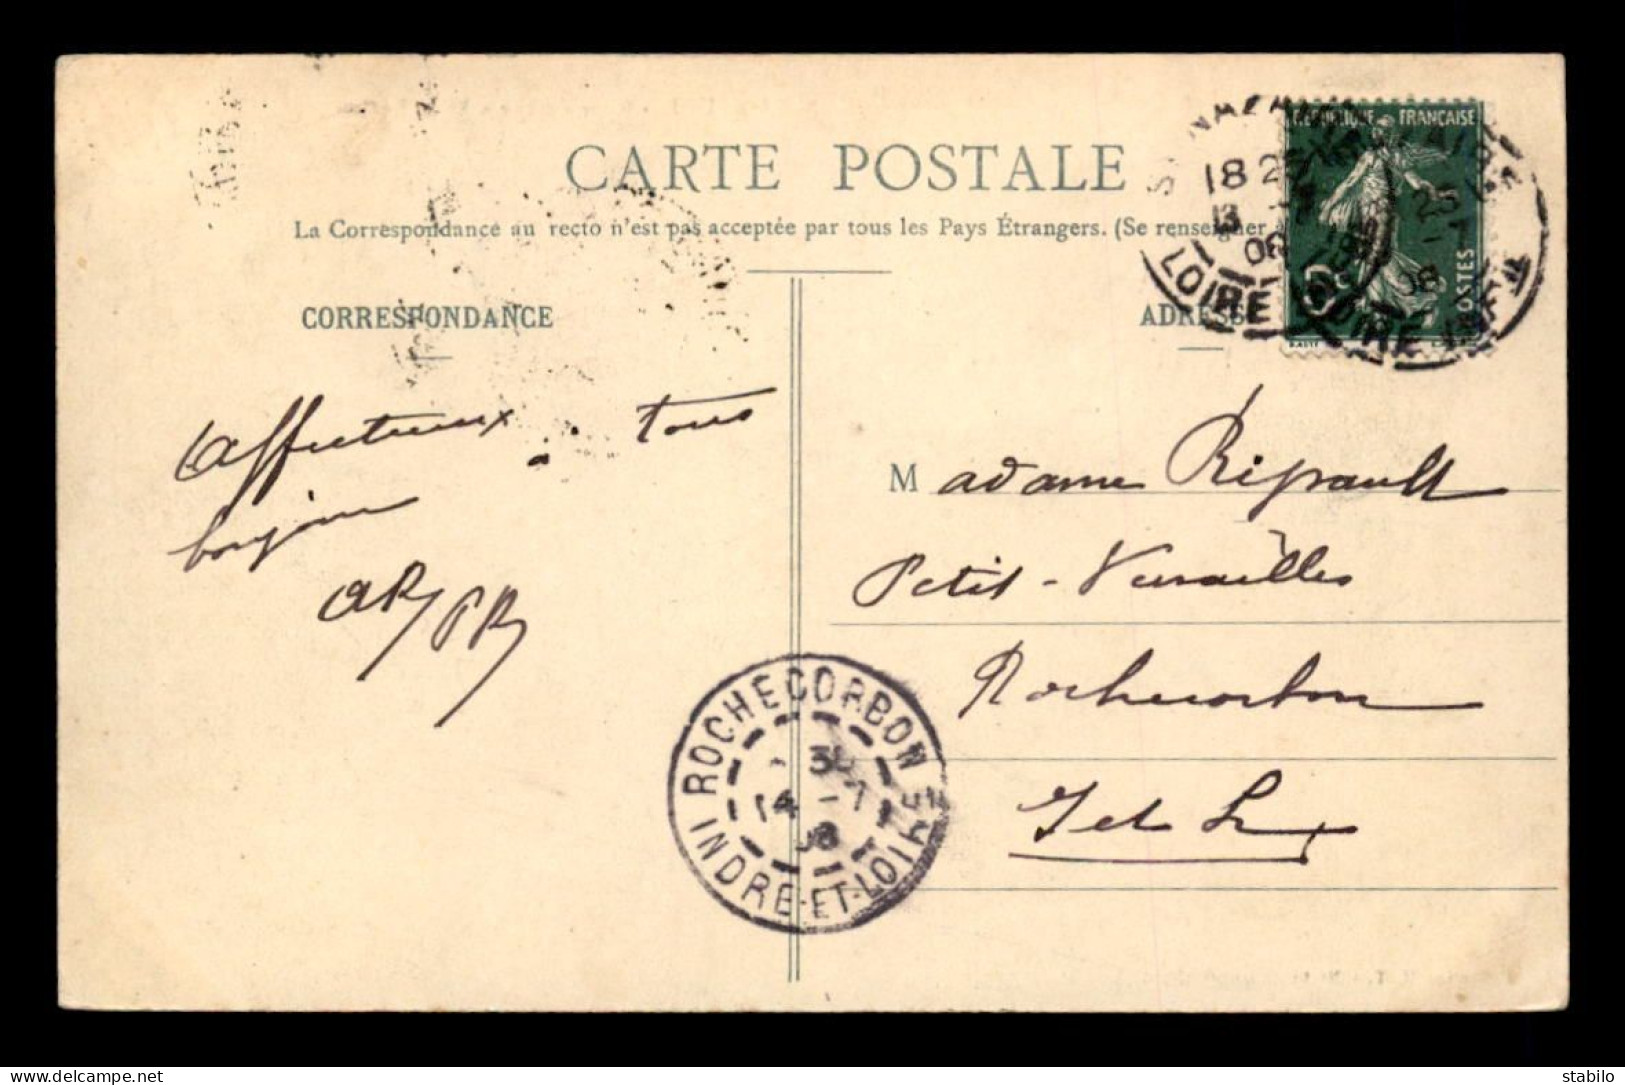 CARTE POSTALE
La Correspondance au recto n'est pas acceptée par tous les Pays Étrangers. (Se renseigner
CORRESPONDANCE
ADRESSE
REPUBLIQUE FRANÇAISE
POSTES
18 25
13
08
LOIRE
25
-7
08
LOIRE INFRE
Affectueux
à tous
bonjour
AR PR
Madame Ripault
Petit-Versailles
Rochecorbon
I et L
ROCHECORBON
14 - 7
08
INDRE-ET-LOIRE
delcampe.net
stabilo